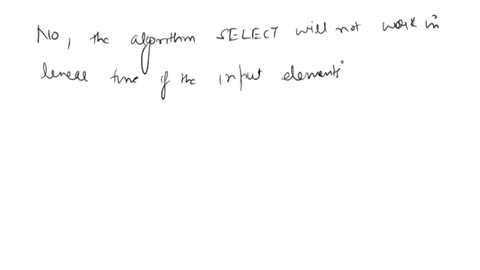 No, the algorithm SELECT will not work in
linear time if the input elements